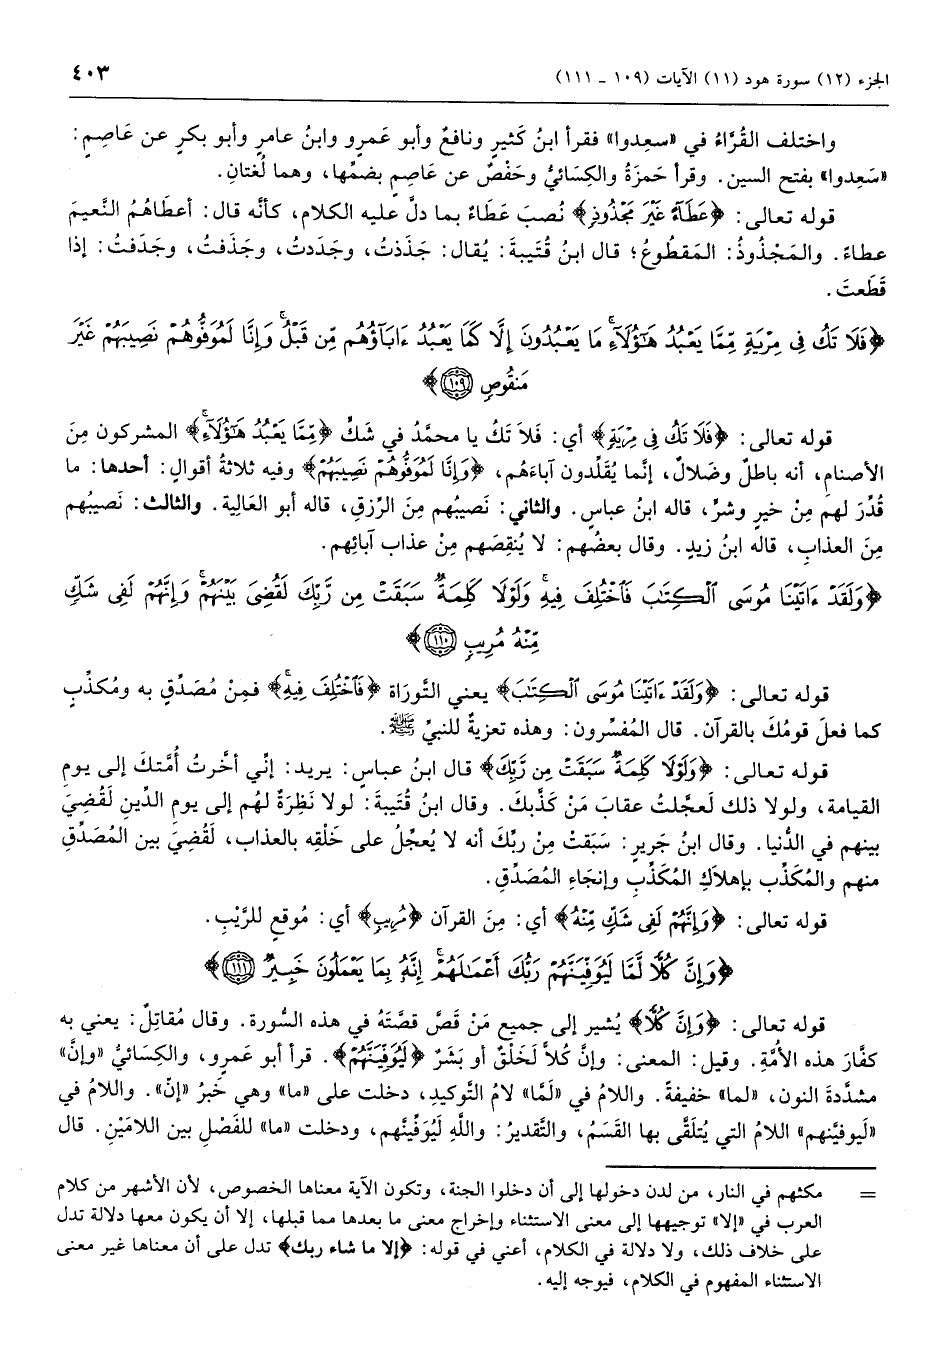 الجزء (١٢) سورة هود (١١) الآيات (١٠٩ ـ ١١١) ٤٠٣
واختلف القُرَّاءُ في «سعدوا» فقرأ ابنُ كَثيرٍ ونافعٌ وأبو عَمرو وابنُ عامرٍ وأبو بكرٍ عن عَاصِمٍ:
«سَعِدوا» بفتح السين. وقرأ حَمزَةُ والكِسَائيُّ وحَفْصٌ عن عَاصِمٍ بضمِّها، وهما لُغتانِ.
قوله تعالى: ﴿عَطَآءً غَيْرَ مَجْذُوذٍ﴾ نُصبَ عَطَاءٌ بما دلَّ عليه الكلام، كأنَّه قال: أعطَاهُمُ النَّعيمَ
عطاءً. والمَجْذُوذُ: المَقطُوعُ؛ قال ابنُ قُتَيبةَ: يُقال: جَذَذتُ، وجَدَدتُ، وجَذَفتُ، وجَدَفتُ: إذا
قَطَعتَ.
﴿فَلَا تَكُ فِى مِرْيَةٍ مِّمَّا يَعْبُدُ هَٰٓؤُلَآءِ ۚ مَا يَعْبُدُونَ إِلَّا كَمَا يَعْبُدُ ءَابَآؤُهُم مِّن قَبْلُ ۚ وَإِنَّا لَمُوَفُّوهُمْ نَصِيبَهُمْ غَيْرَ
مَنقُوصٍ ١٠٩﴾
قوله تعالى: ﴿فَلَا تَكُ فِى مِرْيَةٍ﴾ أي: فَلاَ تَكُ يا محمَّد في شَكٍّ ﴿مِّمَّا يَعْبُدُ هَٰٓؤُلَآءِ ۚ﴾ المشركون مِنَ
الأصنامِ، أنه باطلٌ وضَلالٌ، إنَّما يُقَلِّدون آباءَهُم، ﴿وَإِنَّا لَمُوَفُّوهُمْ نَصِيبَهُمْ﴾ وفيه ثلاثةُ أقوالٍ: أحدها: ما
قُدِّرَ لهم مِنْ خيرٍ وشرٍّ، قاله ابنُ عباسٍ. والثاني: نَصيبُهم مِنَ الرِّزقِ، قاله أبو العَالِية. والثالث: نَصيبُهم
مِنَ العذابِ، قاله ابنُ زيدٍ. وقال بعضُهم: لا يُنقِصَهم مِنْ عذاب آبائِهم.
﴿وَلَقَدْ ءَاتَيْنَا مُوسَى ٱلْكِتَٰبَ فَٱخْتُلِفَ فِيهِ ۚ وَلَوْلَا كَلِمَةٌ سَبَقَتْ مِن رَّبِّكَ لَقُضِىَ بَيْنَهُمْ ۚ وَإِنَّهُمْ لَفِى شَكٍّ
مِّنْهُ مُرِيبٍ ١١٠﴾
قوله تعالى: ﴿وَلَقَدْ ءَاتَيْنَا مُوسَى ٱلْكِتَٰبَ﴾ يعني التَّورَاة ﴿فَٱخْتُلِفَ فِيهِ ۚ﴾ فمِنْ مُصَدِّقٍ به ومُكذِّبٍ
كما فعلَ قومُكَ بالقرآن. قال المُفسِّرون: وهذه تعزيةٌ للنبيِّ ﷺ.
قوله تعالى: ﴿وَلَوْلَا كَلِمَةٌ سَبَقَتْ مِن رَّبِّكَ﴾ قال ابنُ عباسٍ: يريد: إنِّي أخَّرتُ أُمَّتكَ إلى يومِ
القيامة، ولولا ذلك لَعجَّلتُ عقابَ مَنْ كَذَّبكَ. وقال ابنُ قُتَيبةَ: لولا نَظِرَةٌ لهُم إلى يوم الدِّينِ لَقُضِيَ
بينهم في الدُّنيا. وقال ابنُ جَريرٍ: سَبَقتْ مِنْ ربِّكَ أنه لا يُعجِّلُ على خَلْقِه بالعذاب، لَقُضِيَ بين المُصَدِّقِ
منهم والمُكَذِّب بإهلاكِ المُكَذِّبِ وإنجَاءِ المُصَدِّقِ.
قوله تعالى: ﴿وَإِنَّهُمْ لَفِى شَكٍّ مِّنْهُ﴾ أي: مِنَ القرآن ﴿مُرِيبٍ﴾ أي: مُوقعٍ للرَّيْبِ.
﴿وَإِنَّ كُلًّا لَّمَّا لَيُوَفِّيَنَّهُمْ رَبُّكَ أَعْمَٰلَهُمْ ۚ إِنَّهُۥ بِمَا يَعْمَلُونَ خَبِيرٌ ١١١﴾
قوله تعالى: ﴿وَإِنَّ كُلًّا﴾ يُشير إلى جميعِ مَنْ قَصَّ قصَّتَهُ في هذه السُّورة. وقال مُقاتِلٌ: يعني به
كفَّارَ هذه الأمَّةِ. وقيل: المعنى: وإنَّ كُلاًّ لَخَلْقٌ أو بَشَرٌ ﴿لَيُوَفِّيَنَّهُمْ﴾. قرأ أبو عَمرٍو، والكِسَائيُّ «وإنَّ»
مشدَّدةَ النون، «لما» خفيفةً. واللامُ في «لَمَّا» لامُ التَّوكيدِ، دخلت على «ما» وهي خَبرُ «إنّ». واللامُ في
«لَيوفيَّنهم» اللامُ التي يُتلَقَّى بها القَسَمُ، والتَّقديرُ: واللَّهِ لَيُوَفِّيَنَّهم، ودخلت «ما» للفَصْلِ بين اللامَيْنِ. قال
= مكثهم في النار، من لدن دخولها إلى أن دخلوا الجنة، وتكون الآية معناها الخصوص، لأن الأشهر من كلام
العرب في «إلا» توجيهها إلى معنى الاستثناء وإخراج معنى ما بعدها مما قبلها، إلا أن يكون معها دلالة تدل
على خلاف ذلك، ولا دلالة في الكلام، أعني في قوله: ﴿إلا ما شاء ربك﴾ تدل على أن معناها غير معنى
الاستثناء المفهوم في الكلام، فيوجه إليه.